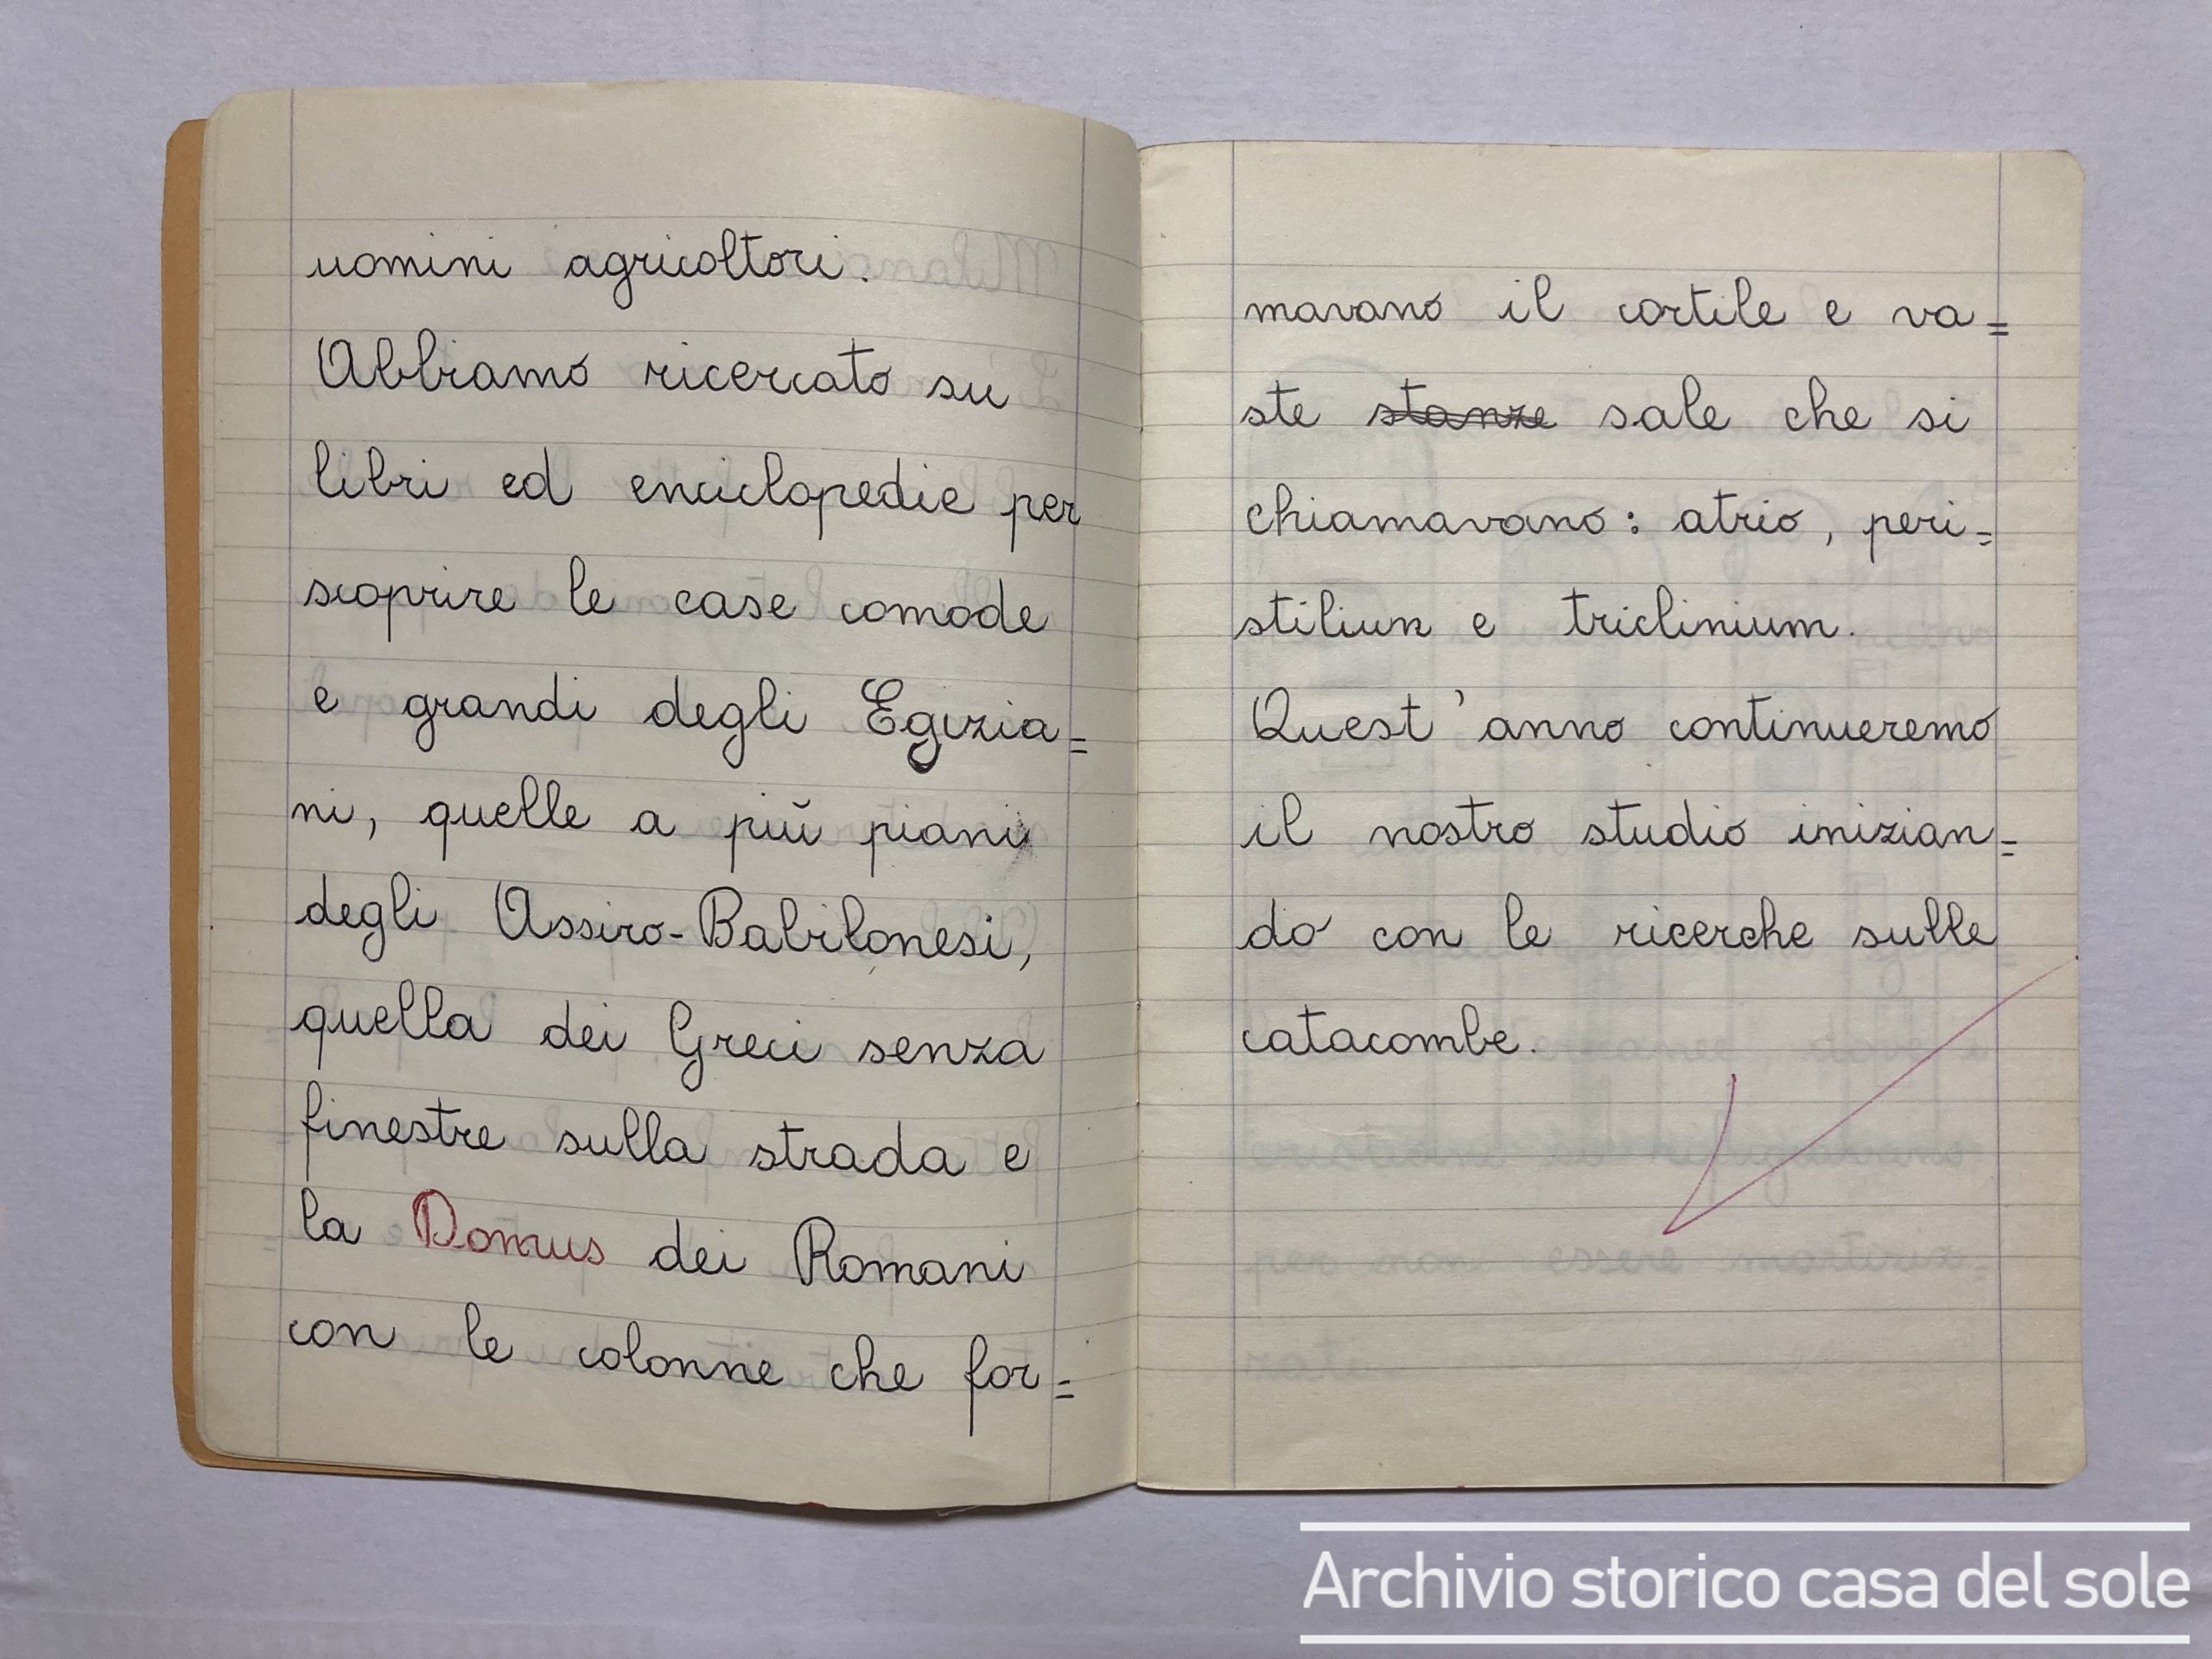 uomini agricoltori.
Abbiamo ricercato su
libri ed enciclopedie per
scoprire le case comode
e grandi degli Egizia=
ni, quelle a più piani
degli Assiro-Babilonesi,
quella dei Greci senza
finestre sulla strada e
la Domus dei Romani
con le colonne che for=
mavano il cortile e va=
ste stanze sale che si
chiamavano: atrio, peri=
stiliun e triclinium.
Quest'anno continueremo
il nostro studio inizian=
do con le ricerche sulle
catacombe.
Archivio storico casa del sole